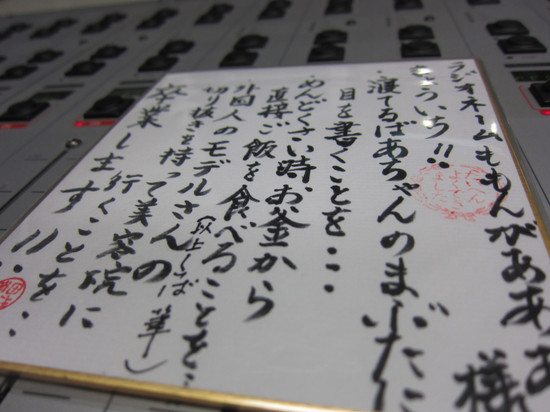 ラジオネームももんがああ
様
もういち!!
・寝てるばあちゃんのまぶたに
目を書くことを・・・
・めんどくさい時、お釜から
直接ご飯を食べることを・・・
・外国人のモデルさんの
切り抜きを持って美容院に
行くことを・・
卒業します!!